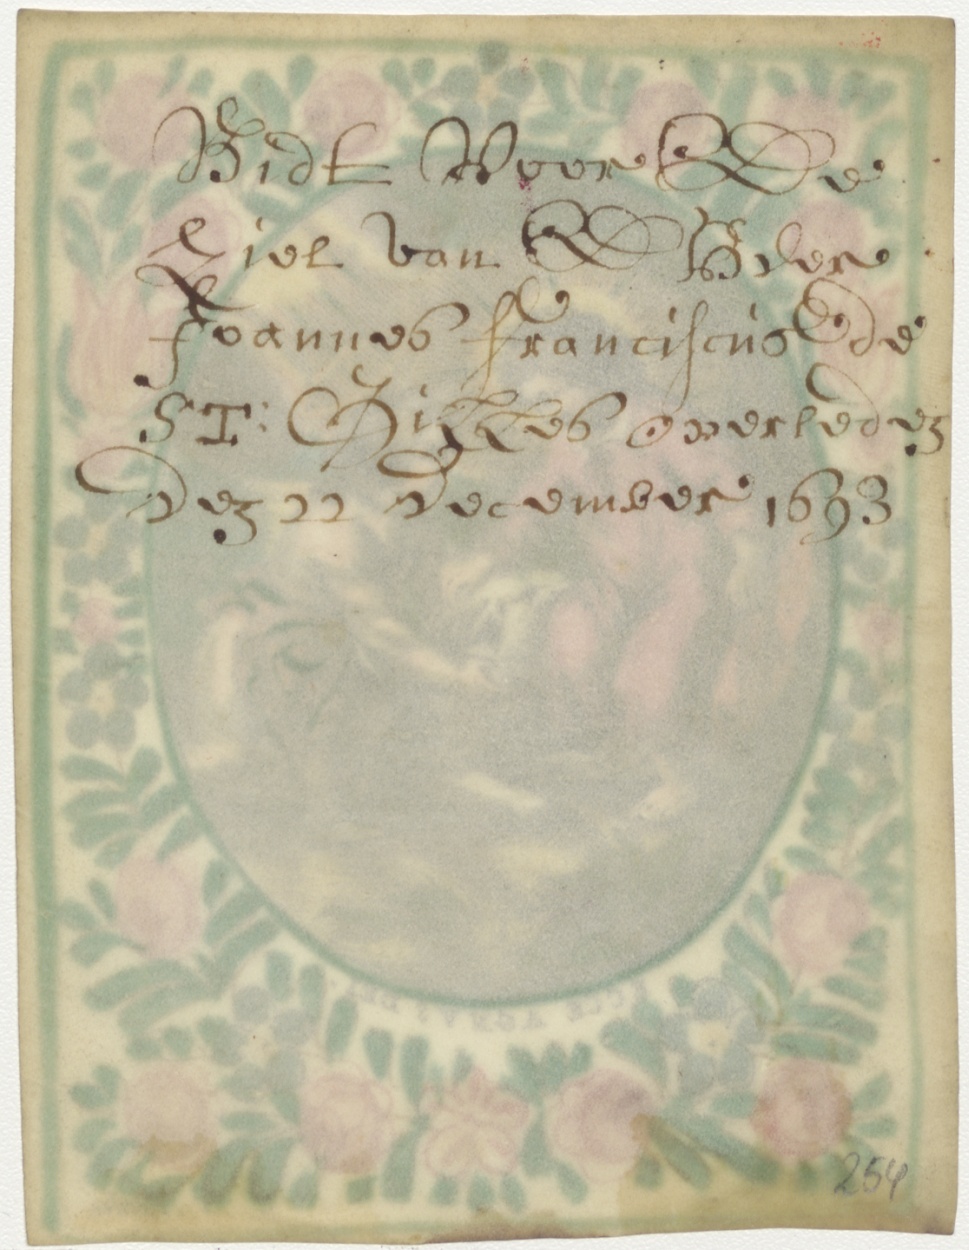 Bidt Voor De
Ziel van D Heer
Joannes franciscus de
ST: Gilles overleden
den 22 december 1693
ECCE AGNVS DEI
254